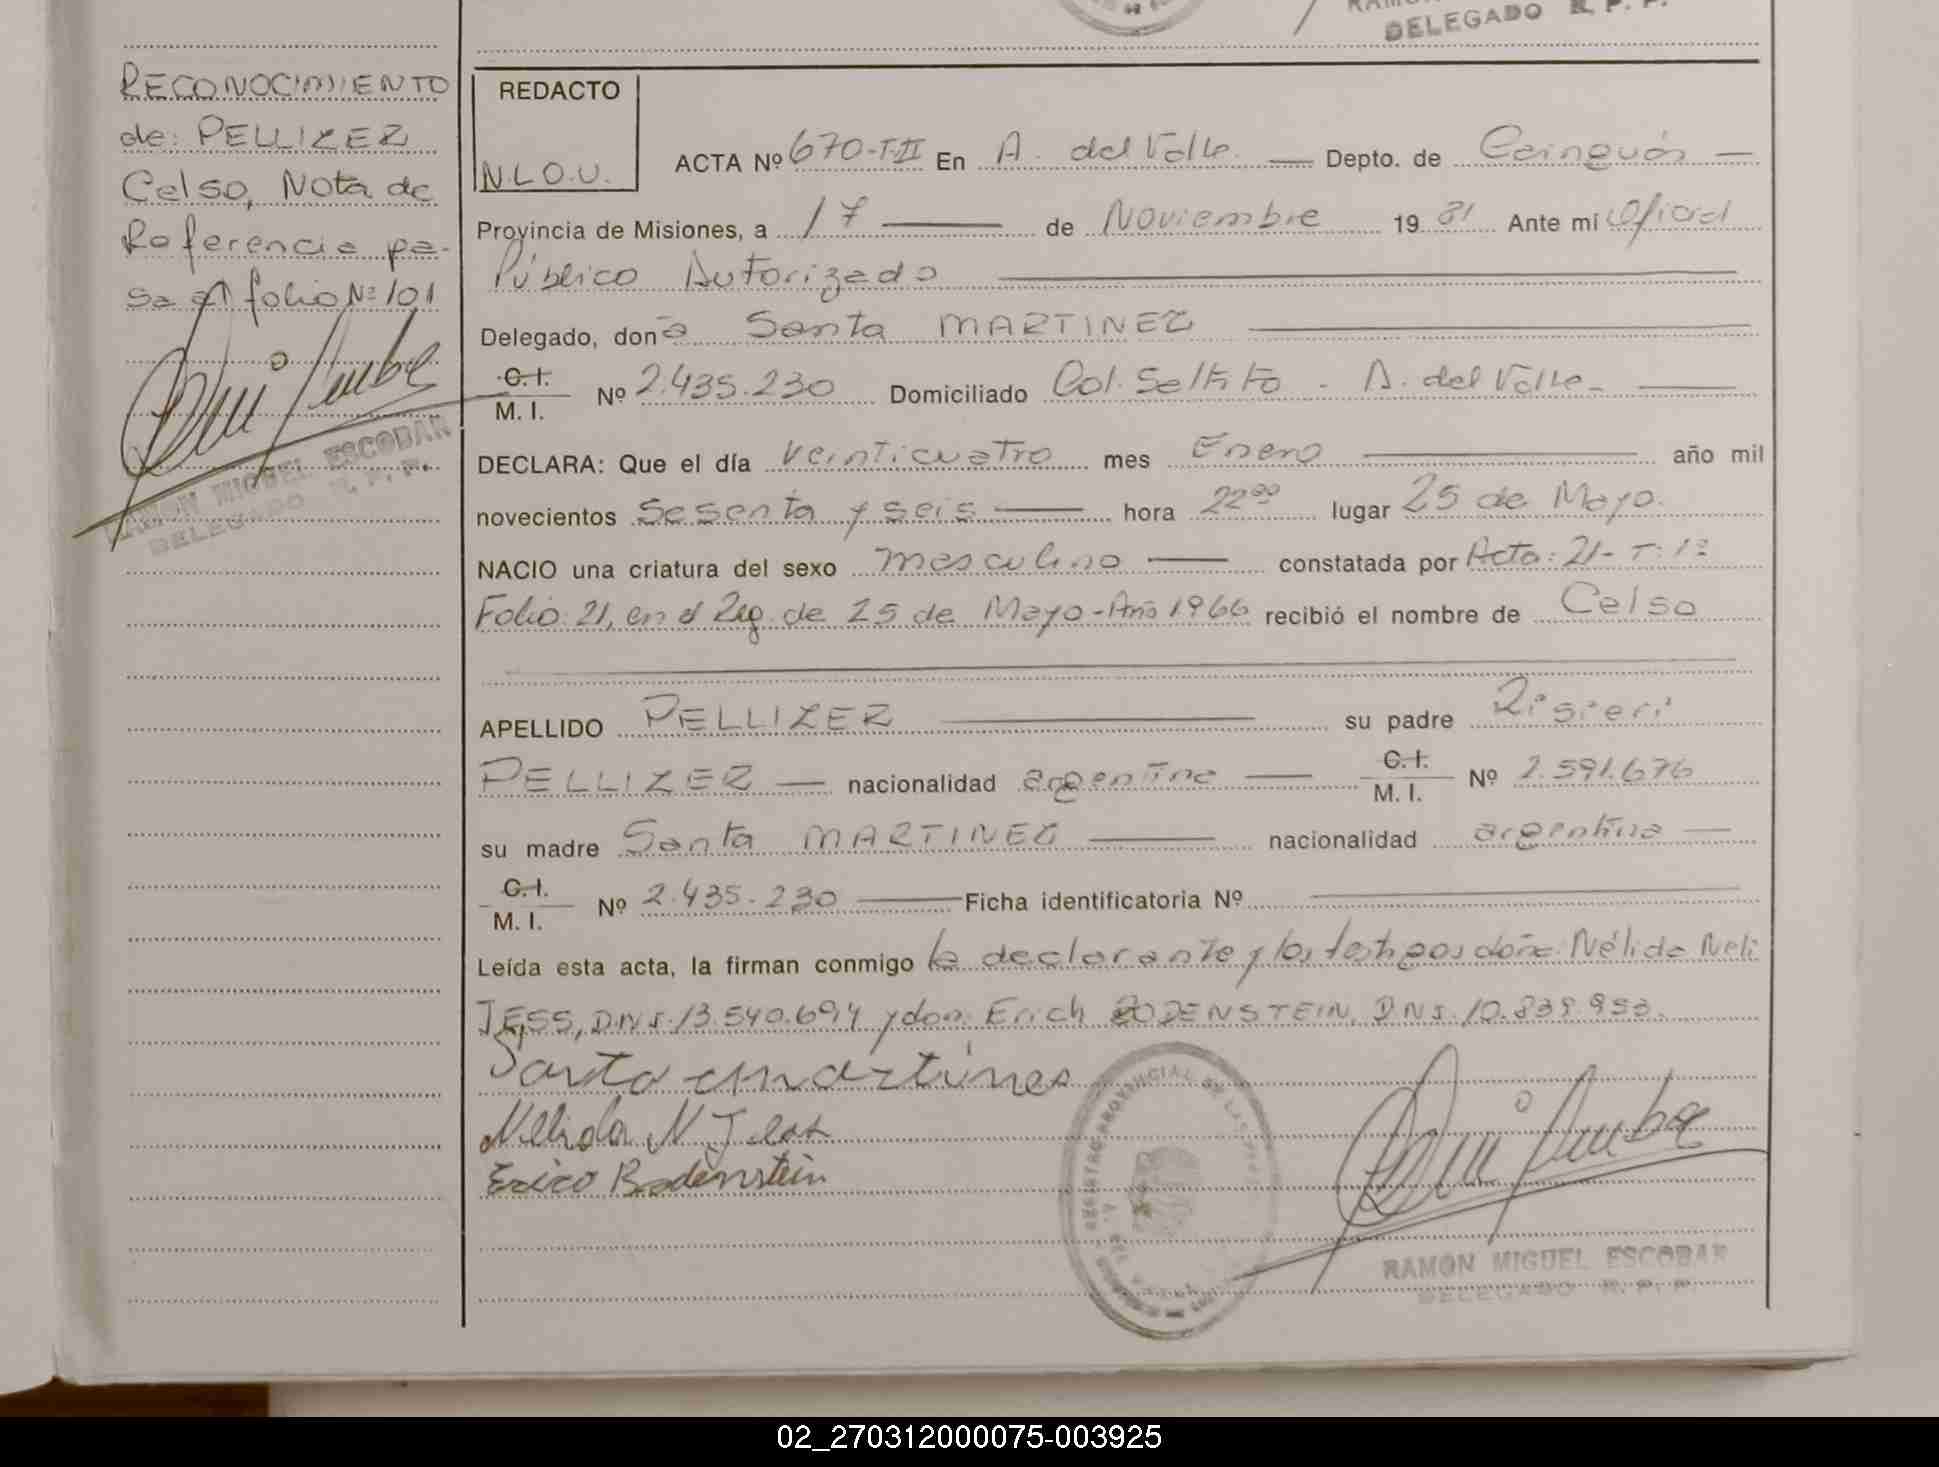 DELEGADO R. P. P.
RECONOCIMIENTO
de: PELLIZER
Celso, Nota de
Referencia pa-
sa al folio Nº 101
RAMON MIGUEL ESCOBAR
DELEGADO R. P. P.
REDACTO
N.L.O.U.
ACTA Nº 670-T-II En A. del Valle. — Depto. de Cainguás —
Provincia de Misiones, a 17 — de Noviembre 19 81 Ante mi Oficial
Público Autorizado
Delegado, doña Santa MARTINEZ
C. I.
M. I. Nº 2.435.230 Domiciliado Col. Seltito - A. del Valle-
DECLARA: Que el día veinticuatro mes Enero — año mil
novecientos sesenta y seis — hora 22⁰⁰ lugar 25 de Mayo.
NACIO una criatura del sexo masculino — constatada por Acta: 21- T: 1º
Folio: 21, en el Reg. de 25 de Mayo-Año 1966 recibió el nombre de Celso
APELLIDO PELLIZER — su padre
PELLIZER — nacionalidad argentina — C. I. M. I. Nº 2.591.676
su madre Santa MARTINEZ — nacionalidad argentina —
C. I.
M. I. Nº 2.435.230 — Ficha identificatoria Nº
Leída esta acta, la firman conmigo la declarante y los testigos doña: Nélida Neli
JESS, D.N.I. 13.540.694 y don: Erich BODENSTEIN, D.N.I. 10.839.953.
Santa martines
Nelida N Jess
Erico Bodenstein
REGISTRO PROVINCIAL DE LAS
A. DEL VALLE
RAMON MIGUEL ESCOBAR
DELEGADO R. P. P.
02_270312000075-003925